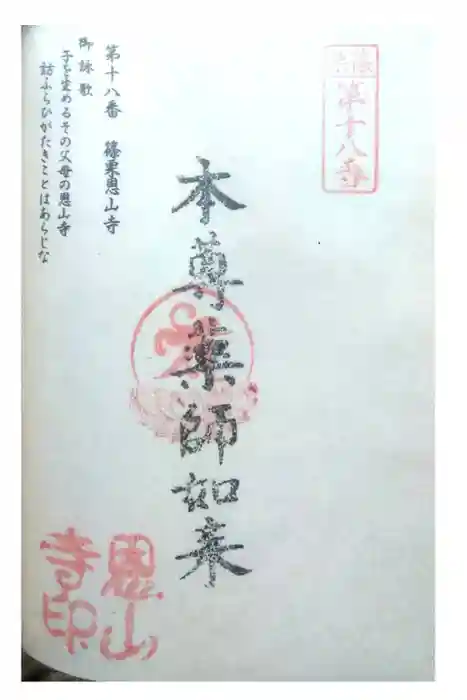 第十八番
本尊薬師如来
恩山寺印
第十八番　篠栗恩山寺
御詠歌
子を産めるその父母の恩山寺
訪ふらひがたきことはあらじな